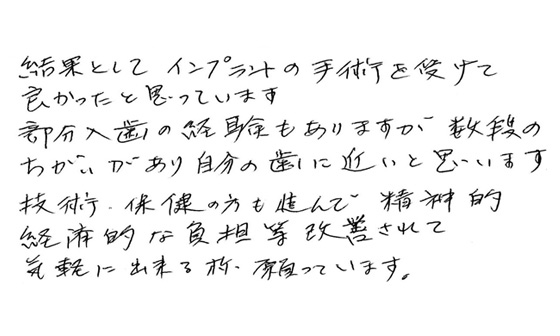 結果として インプラントの手術を受けて
良かったと思っています
部分入歯の経験もありますが 数段の
ちがいがあり自分の歯に近いと思います
技術・保健の方も進んで 精神的
経済的な負担等改善されて
気軽に出来る様 願っています。